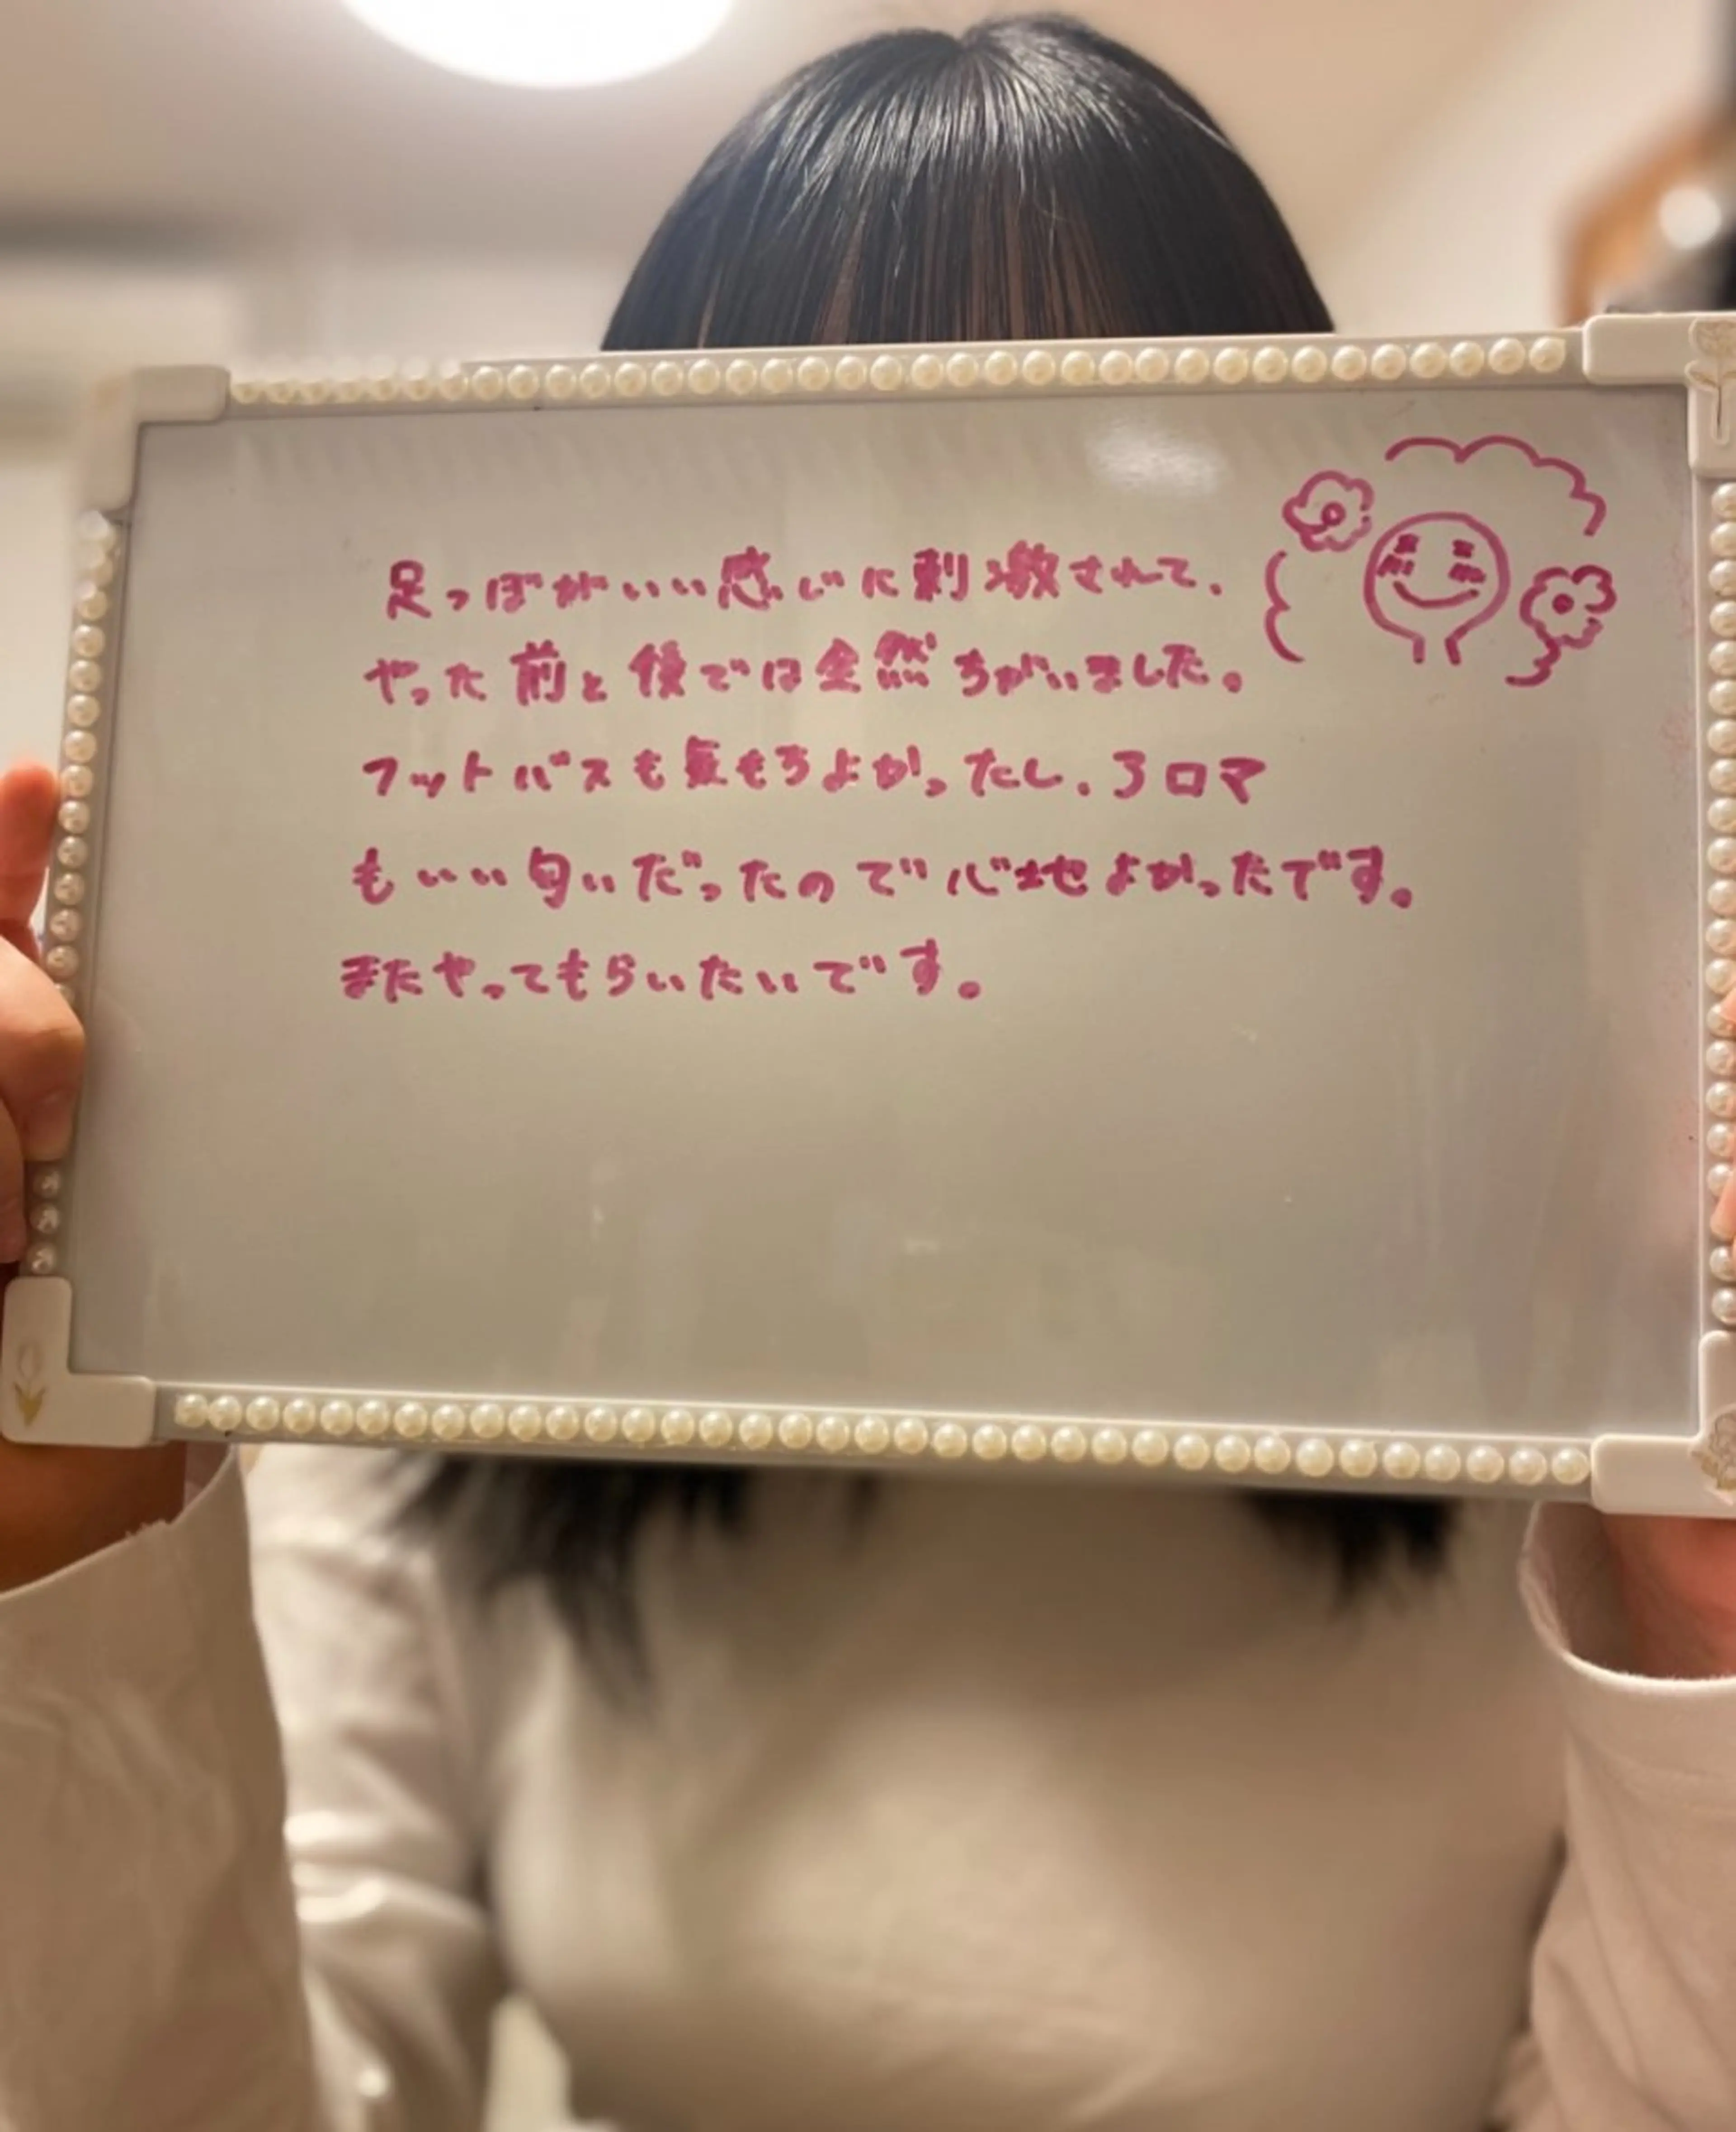 足っぼがいい感じに刺激されて、
やった前と後では全然ちがいました。
フットバスも気もちよかったし、アロマ
もいい匂いだったので心地よかったです。
またやってもらいたいです。